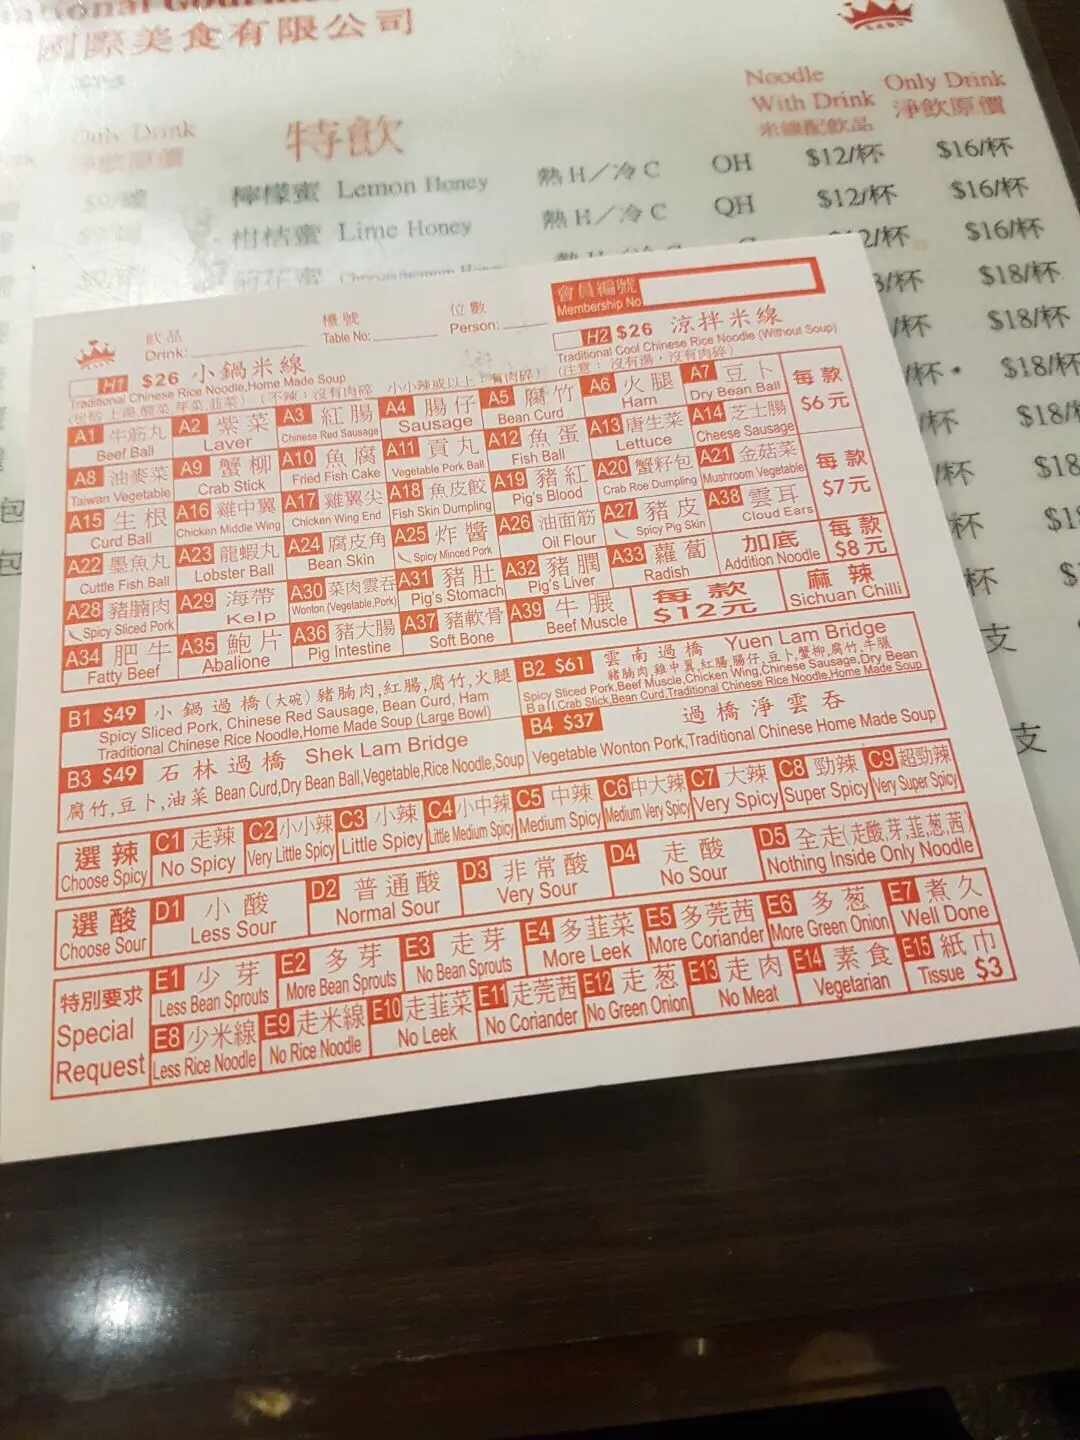 國際美食有限公司
Only Drink
淨飲原價
特飲
Noodle
With Drink
米線配飲品
Only Drink
淨飲原價
檸檬蜜 Lemon Honey 熱 H／冷 C OH $12/杯 $16/杯
柑桔蜜 Lime Honey 熱 H／冷 C QH $12/杯 $16/杯
$16/杯
$18/杯
$18/杯
$18/杯
飲品
Drink:
檯號
Table No:
位數
Person:
會員編號
Membership No
H1 $26 小鍋米線
Traditional Chinese Rice Noodle,Home Made Soup
(包括：上湯,酸菜,芽菜,韭菜) (不辣：沒有肉碎 小小辣或以上：有肉碎)
H2 $26 涼拌米線
Traditional Cool Chinese Rice Noodle (Without Soup)
(注意：沒有湯，沒有肉碎)
A1 牛筋丸 Beef Ball
A2 紫菜 Laver
A3 紅腸 Chinese Red Sausage
A4 腸仔 Sausage
A5 腐竹 Bean Curd
A6 火腿 Ham
A7 豆卜 Dry Bean Ball
每款 $6元
A8 油麥菜 Taiwan Vegetable
A9 蟹柳 Crab Stick
A10 魚腐 Fried Fish Cake
A11 貢丸 Vegetable Pork Ball
A12 魚蛋 Fish Ball
A13 唐生菜 Lettuce
A14 芝士腸 Cheese Sausage
A15 生根 Curd Ball
A16 雞中翼 Chicken Middle Wing
A17 雞翼尖 Chicken Wing End
A18 魚皮餃 Fish Skin Dumpling
A19 豬紅 Pig's Blood
A20 蟹籽包 Crab Roe Dumpling
A21 金菇菜 Mushroom Vegetable
每款 $7元
A22 墨魚丸 Cuttle Fish Ball
A23 龍蝦丸 Lobster Ball
A24 腐皮角 Bean Skin
A25 炸醬 Spicy Minced Pork
A26 油面筋 Oil Flour
A27 豬皮 Spicy Pig Skin
A38 雲耳 Cloud Ears
A28 豬腩肉 Spicy Sliced Pork
A29 海帶 Kelp
A30 菜肉雲吞 Wonton (Vegetable,Pork)
A31 豬肚 Pig's Stomach
A32 豬膶 Pig's Liver
A33 蘿蔔 Radish
加底 Addition Noodle
每款 $8元
A34 肥牛 Fatty Beef
A35 鮑片 Abalione
A36 豬大腸 Pig Intestine
A37 豬軟骨 Soft Bone
A39 牛𦟌 Beef Muscle
每款 $12元
麻辣 Sichuan Chilli
B1 $49 小鍋過橋(大碗) 豬腩肉,紅腸,腐竹,火腿
Spicy Sliced Pork, Chinese Red Sausage, Bean Curd, Ham
Traditional Chinese Rice Noodle,Home Made Soup (Large Bowl)
B2 $61 雲南過橋 Yuen Lam Bridge
豬腩肉,雞中翼,紅腸,腸仔,豆卜,蟹柳,腐竹,牛𦟌
Spicy Sliced Pork,Beef Muscle,Chicken Wing,Chinese Sausage,Dry Bean
Ball,Crab Stick,Bean Curd,Traditional Chinese Rice Noodle,Home Made Soup
B3 $49 石林過橋 Shek Lam Bridge
腐竹,豆卜,油菜 Bean Curd,Dry Bean Ball,Vegetable,Rice Noodle,Soup
B4 $37 過橋淨雲吞
Vegetable Wonton Pork,Traditional Chinese Home Made Soup
選辣 Choose Spicy
C1 走辣 No Spicy
C2 小小辣 Very Little Spicy
C3 小辣 Little Spicy
C4 小中辣 Little Medium Spicy
C5 中辣 Medium Spicy
C6 中大辣 Medium Very Spicy
C7 大辣 Very Spicy
C8 勁辣 Super Spicy
C9 超勁辣 Very Super Spicy
選酸 Choose Sour
D1 小酸 Less Sour
D2 普通酸 Normal Sour
D3 非常酸 Very Sour
D4 走酸 No Sour
D5 全走(走酸,芽,韮,葱,茜) Nothing Inside Only Noodle
特別要求 Special Request
E1 少芽 Less Bean Sprouts
E2 多芽 More Bean Sprouts
E3 走芽 No Bean Sprouts
E4 多韮菜 More Leek
E5 多莞茜 More Coriander
E6 多葱 More Green Onion
E7 煮久 Well Done
E8 少米線 Less Rice Noodle
E9 走米線 No Rice Noodle
E10 走韮菜 No Leek
E11 走莞茜 No Coriander
E12 走葱 No Green Onion
E13 走肉 No Meat
E14 素食 Vegetarian
E15 紙巾 Tissue $3